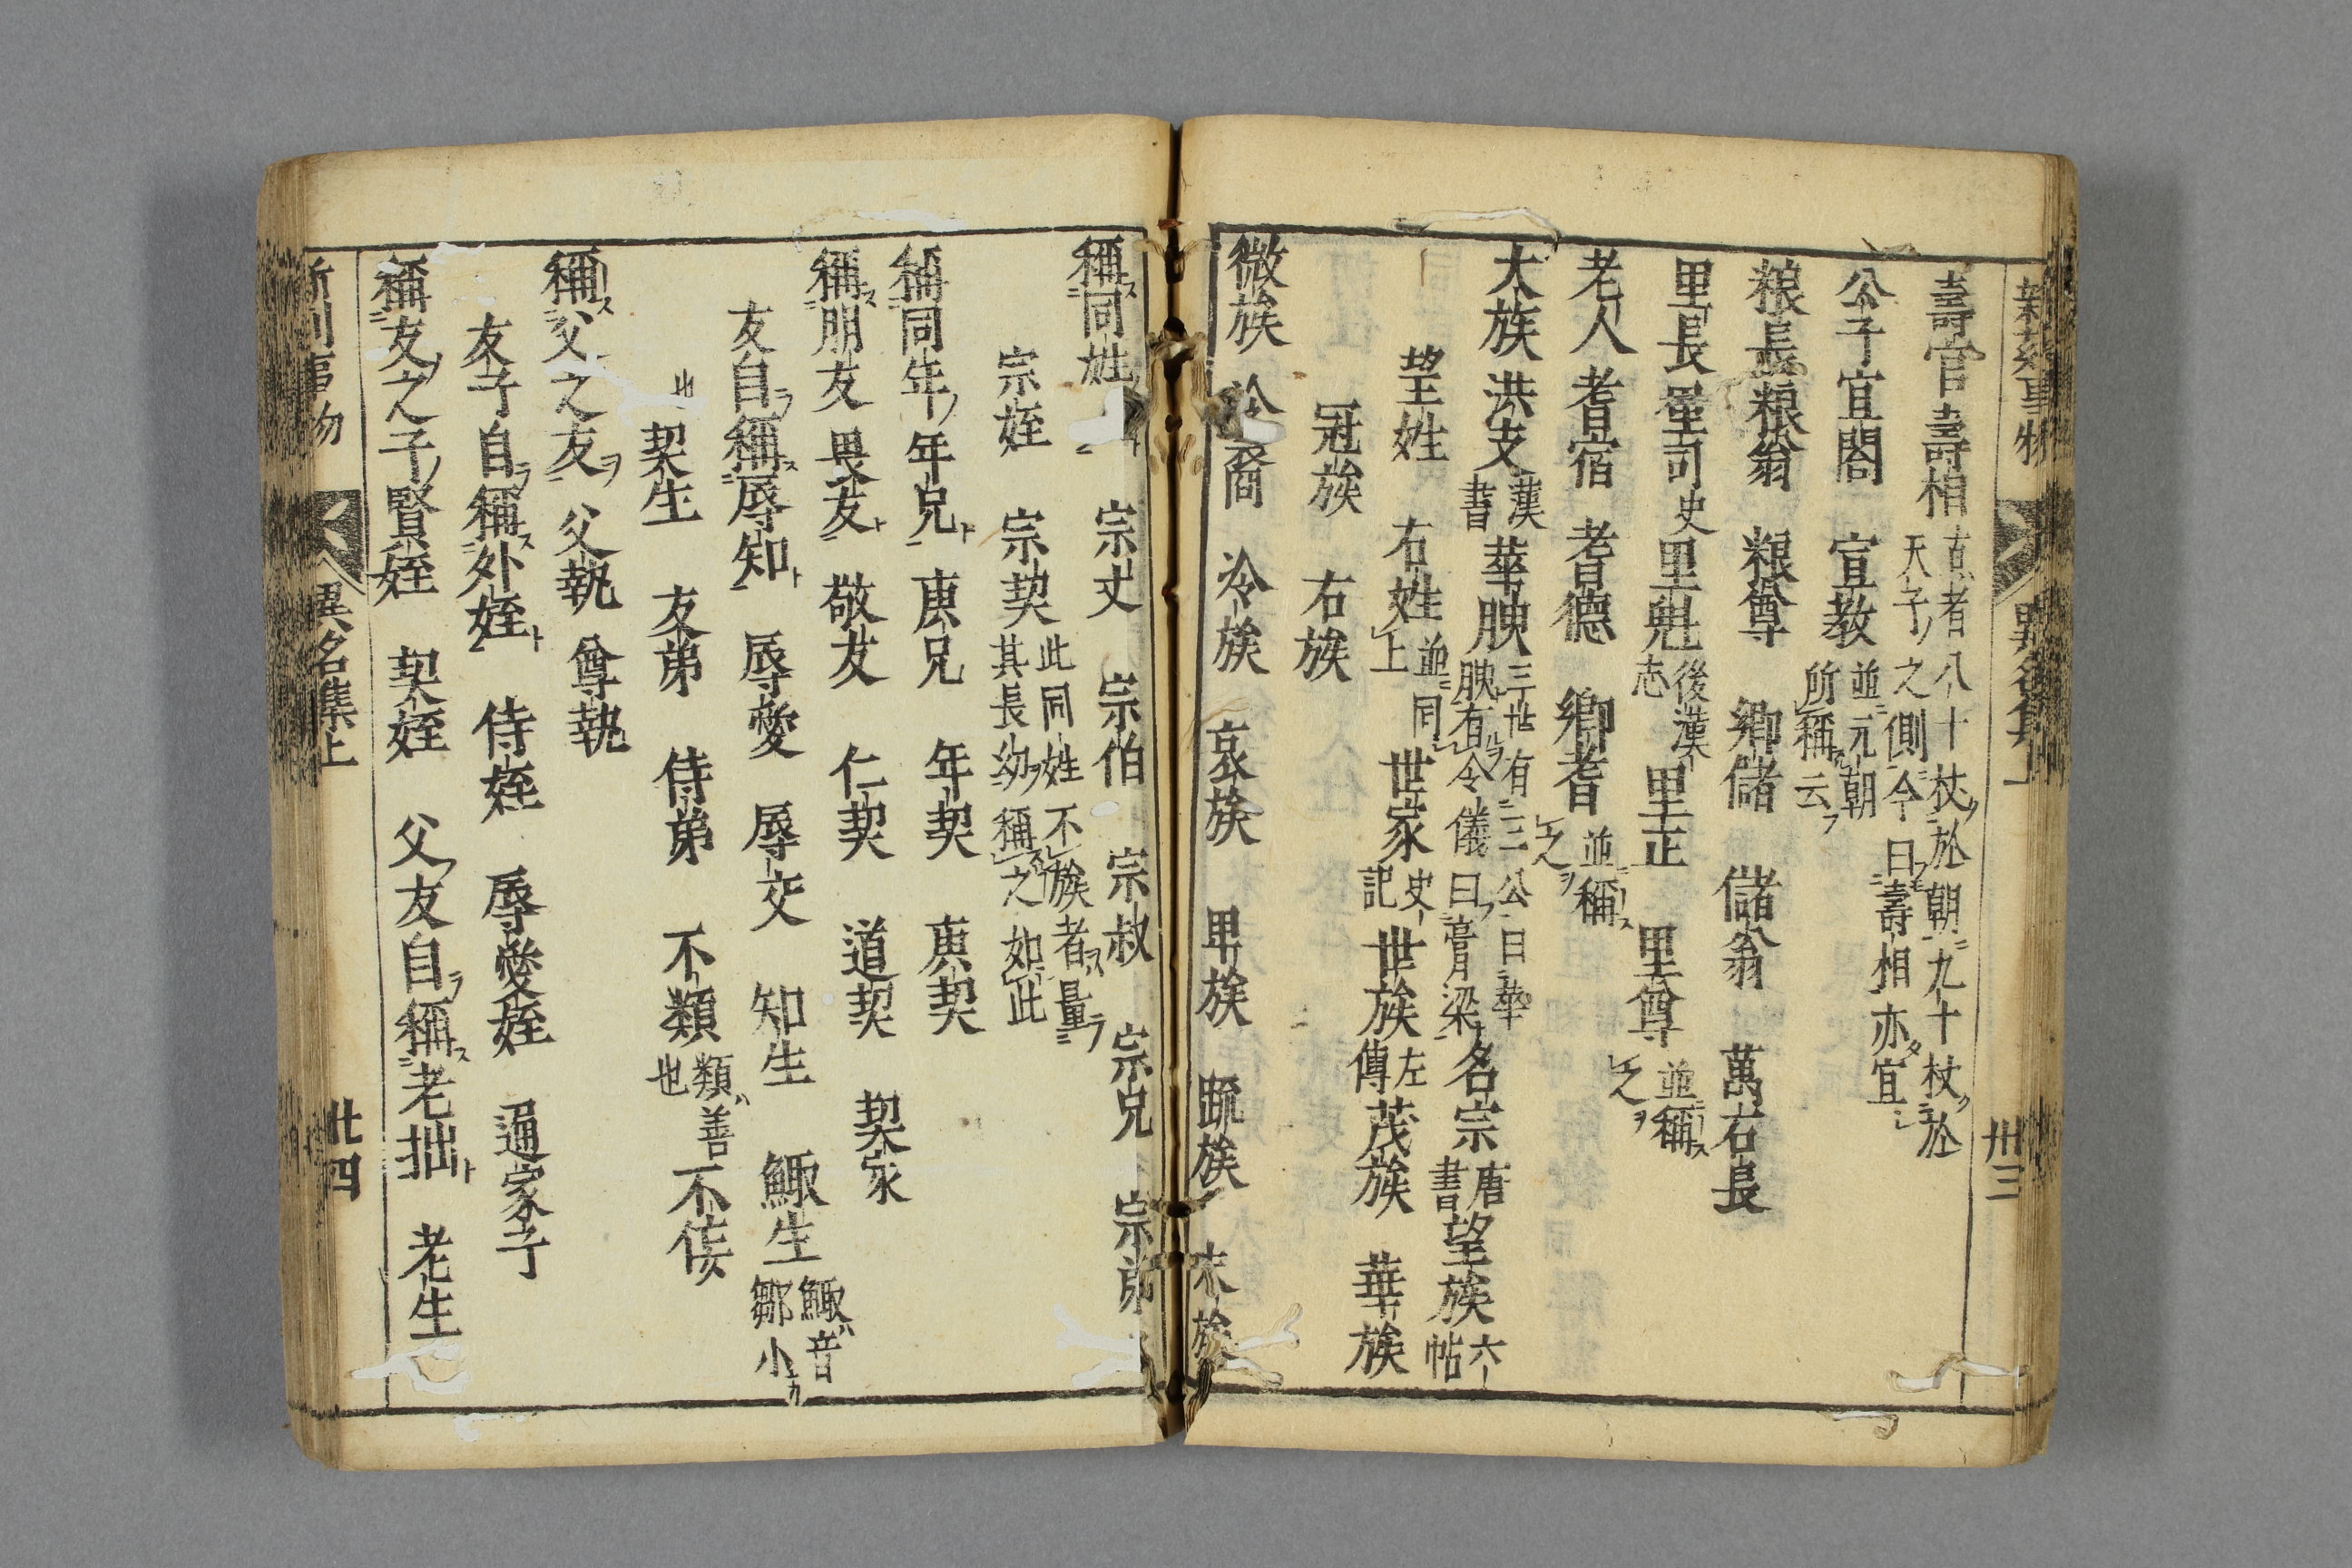 壽官 壽相 古者八十杖ヲ於朝ニ九十杖ヲ於
天子ノ之側今曰壽相亦宜シ
公子 宜閣 宣教 並ニ元ノ朝
所稱云フ
粮長 粮翁 粮尊 鄉儲 儲翁 萬石長
里長 里司 史 里魁 後漢
志 里正 里尊 並ニ稱ス
之ヲ
老人 耆宿 耆德 鄉耆 並ニ稱ス
之ヲ
大族 洪支 漢
書 華腴 三世有三公曰華
腴有令儀曰膏梁 名宗 唐
書 望族 六
帖
望姓 右姓 並ニ同シ
上 世家 史
記 世族 左
傳 茂族 華族
冠族 右族
微族 裔 冷族 哀族 卑族 疏族 末族
新 事物 異名集上 卅三
稱ス同姓 宗丈 宗伯 宗叔 宗兄 宗弟
宗姪 宗契 此同姓不族者量
其長幼ヲ稱之如此
稱同年ノ年兄ト 庚兄 年契 庚契
稱ス朋友 畏友ト 敬友 仁契 道契 契家
友自ラ稱ス辱知ト 辱愛 辱交 知生 鯫生 鯫ハ音
鄒小
也 契生 友弟 侍弟 不類 類ハ善
也 不佞
稱ス父之友ヲ 父執 尊執
友子自ラ稱ス外姪ト 侍姪 辱愛姪 通家子
稱友之子ノ賢姪 契姪 父ノ友自ラ稱ス老拙ト 老生
新刊事物 異名集上 卅四